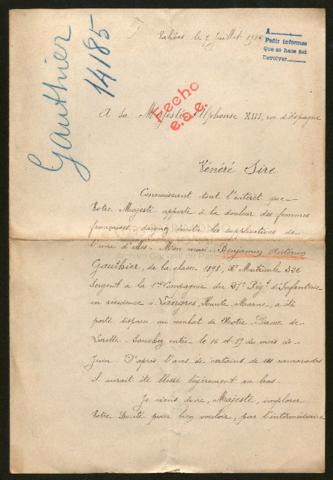 Gauthier
14185
le 5 Juillet 1915
A
Pedir informes
Que se hace así
Devolver
Hecho
e.a.e.
A Sa Majesté Alphonse XIII, roi d'Espagne
Vénéré Sire
Connaissant tout l'intérêt que
Votre Majesté apporte à la douleur des femmes
françaises, daignez écouter les supplications de
l'une d'elles. Mon mari Benjamin
Gauthier, de la classe 1898, Nº Matricule 526
Sergent à la Compagnie du Rég. d'Infanterie
en résidence à Langres, Haute Marne, a été
porté disparu au combat de Notre Dame de
Lorette - Souchez entre le 16 et 19 du mois de
Juin. D'après l'avis de certains de ses camarades
il aurait été blessé légèrement au bras.
Je viens donc, Majesté, implorer
Votre bonté pour bien vouloir, par l'intermédiaire